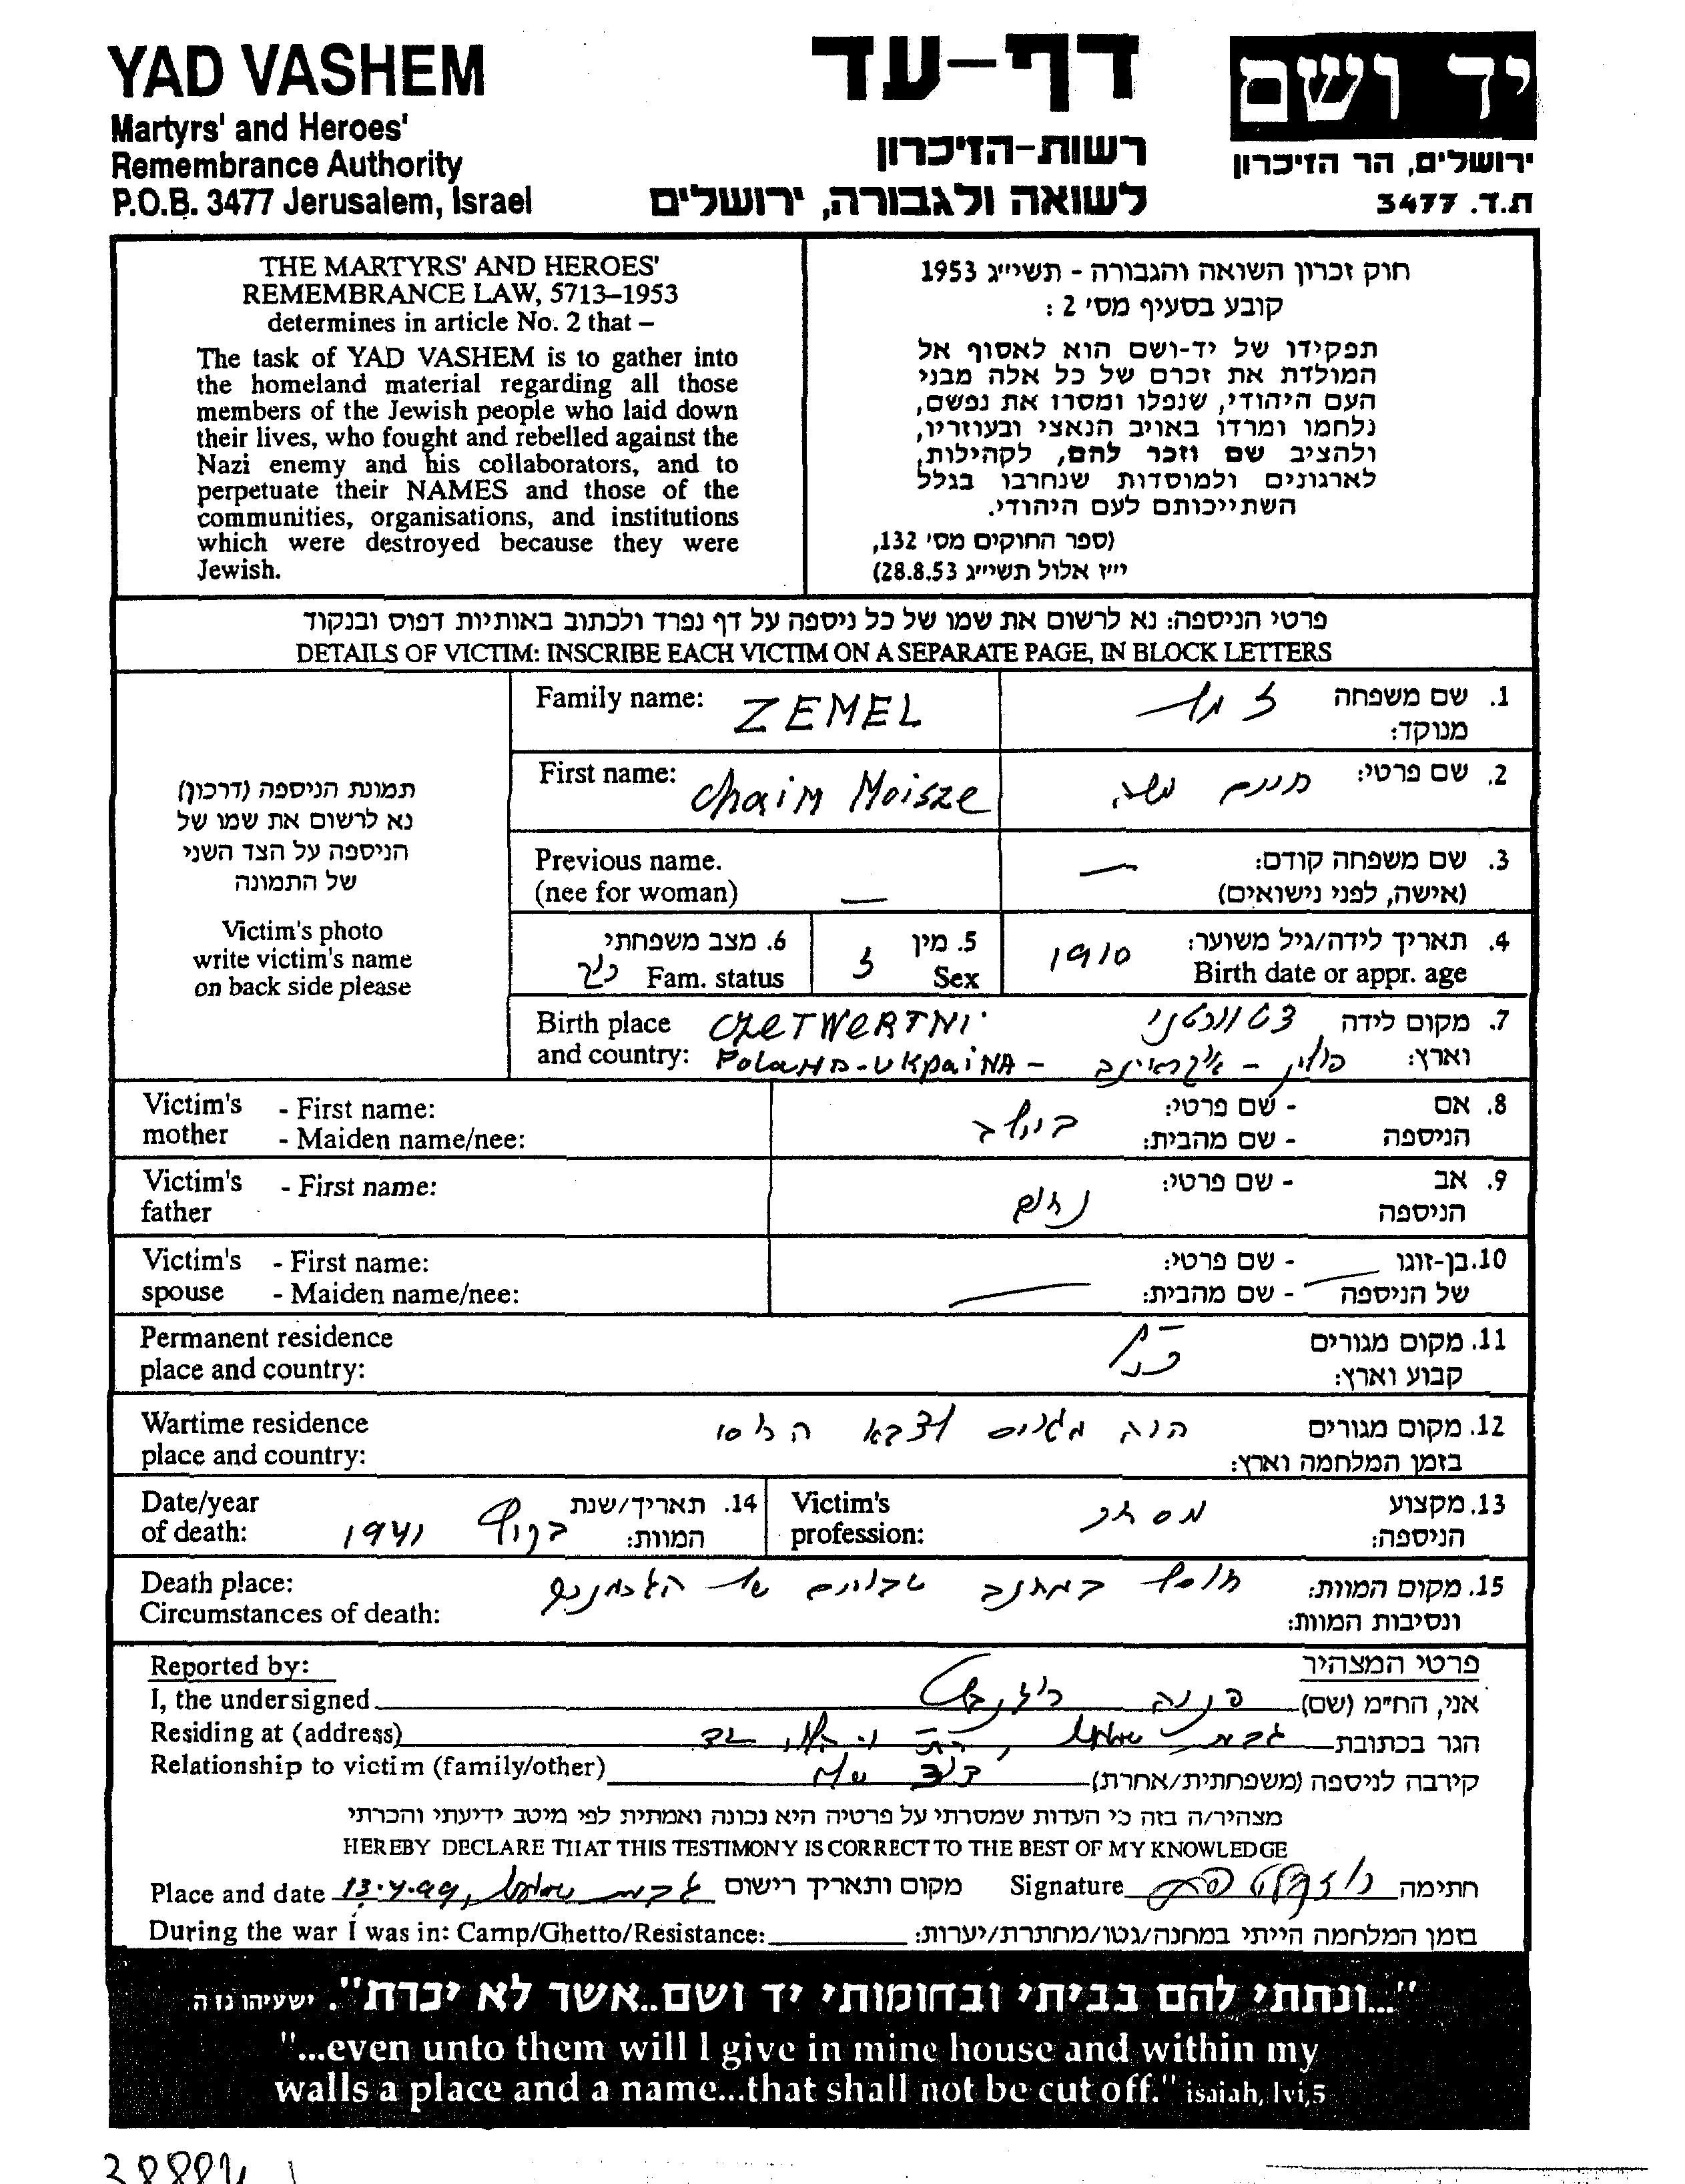 YAD VASHEM
Martyrs' and Heroes'
Remembrance Authority
P.O.B. 3477 Jerusalem, Israel
דף-עד
רשות-הזיכרון
לשואה ולגבורה, ירושלים
יד ושם
ירושלים, הר הזיכרון
ת.ד. 3477
THE MARTYRS' AND HEROES'
REMEMBRANCE LAW, 5713–1953
determines in article No. 2 that –
The task of YAD VASHEM is to gather into
the homeland material regarding all those
members of the Jewish people who laid down
their lives, who fought and rebelled against the
Nazi enemy and his collaborators, and to
perpetuate their NAMES and those of the
communities, organisations, and institutions
which were destroyed because they were
Jewish.
חוק זכרון השואה והגבורה - תשי״ג 1953
קובע בסעיף מס׳ 2 :
תפקידו של יד-ושם הוא לאסוף אל
המולדת את זכרם של כל אלה מבני
העם היהודי, שנפלו ומסרו את נפשם,
נלחמו ומרדו באויב הנאצי ובעוזריו,
ולהציב שם וזכר להם, לקהילות,
לארגונים ולמוסדות שנחרבו בגלל
השתייכותם לעם היהודי.
(ספר החוקים מס׳ 132,
י״ז אלול תשי״ג 28.8.53)
פרטי הניספה: נא לרשום את שמו של כל ניספה על דף נפרד ולכתוב באותיות דפוס ובנקוד
DETAILS OF VICTIM: INSCRIBE EACH VICTIM ON A SEPARATE PAGE, IN BLOCK LETTERS
תמונת הניספה (דרכון)
נא לרשום את שמו של
הניספה על הצד השני
של התמונה
Victim's photo
write victim's name
on back side please
Family name: ZEMEL
1. שם משפחה זמל
מנוקד:
First name: Chaim Moisze
2. שם פרטי: חיים משה
Previous name.
(nee for woman) —
3. שם משפחה קודם: —
(אישה, לפני נישואים)
4. תאריך לידה/גיל משוער: 1910
Birth date or appr. age
5. מין ז
Sex
6. מצב משפחתי
Fam. status
Birth place CZETWERTNI
and country: POLAND-UKPAINA -
7. מקום לידה
וארץ: פולין - אוקראינה
Victim's - First name:
mother - Maiden name/nee:
8. אם - שם פרטי: ביילה
הניספה - שם מהבית:
Victim's - First name:
father
9. אב - שם פרטי: נחום
הניספה
Victim's - First name:
spouse - Maiden name/nee:
10. בן-זוגו - שם פרטי: —
של הניספה - שם מהבית: —
Permanent residence
place and country:
11. מקום מגורים
קבוע וארץ:
Wartime residence
place and country:
12. מקום מגורים היה מגויס לצבא הרוסי
בזמן המלחמה וארץ:
Date/year
of death: 1941
14. תאריך/שנת
המוות:
Victim's
profession:
13. מקצוע מסחר
הניספה:
Death place:
Circumstances of death:
15. מקום המוות: חוסל במחנה שבויים של הגרמנים
ונסיבות המוות:
Reported by:
פרטי המצהיר
I, the undersigned
אני, הח״מ (שם) פנינה
Residing at (address)
הגר בכתובת גבעת שמואל,
Relationship to victim (family/other)
קירבה לניספה (משפחתית/אחרת) דוד שלי
מצהיר/ה בזה כי העדות שמסרתי על פרטיה היא נכונה ואמתית לפי מיטב ידיעתי והכרתי
HEREBY DECLARE THAT THIS TESTIMONY IS CORRECT TO THE BEST OF MY KNOWLEDGE
Place and date 13.4.99, גבעת שמואל מקום ותאריך רישום
Signature חתימה
During the war I was in: Camp/Ghetto/Resistance:
בזמן המלחמה הייתי במחנה/גטו/מחתרת/יערות:
"...ונתתי להם בביתי ובחומותי יד ושם..אשר לא יכרת". ישעיהו נו ה
"...even unto them will I give in mine house and within my
walls a place and a name...that shall not be cut off." isaiah, lvi,5